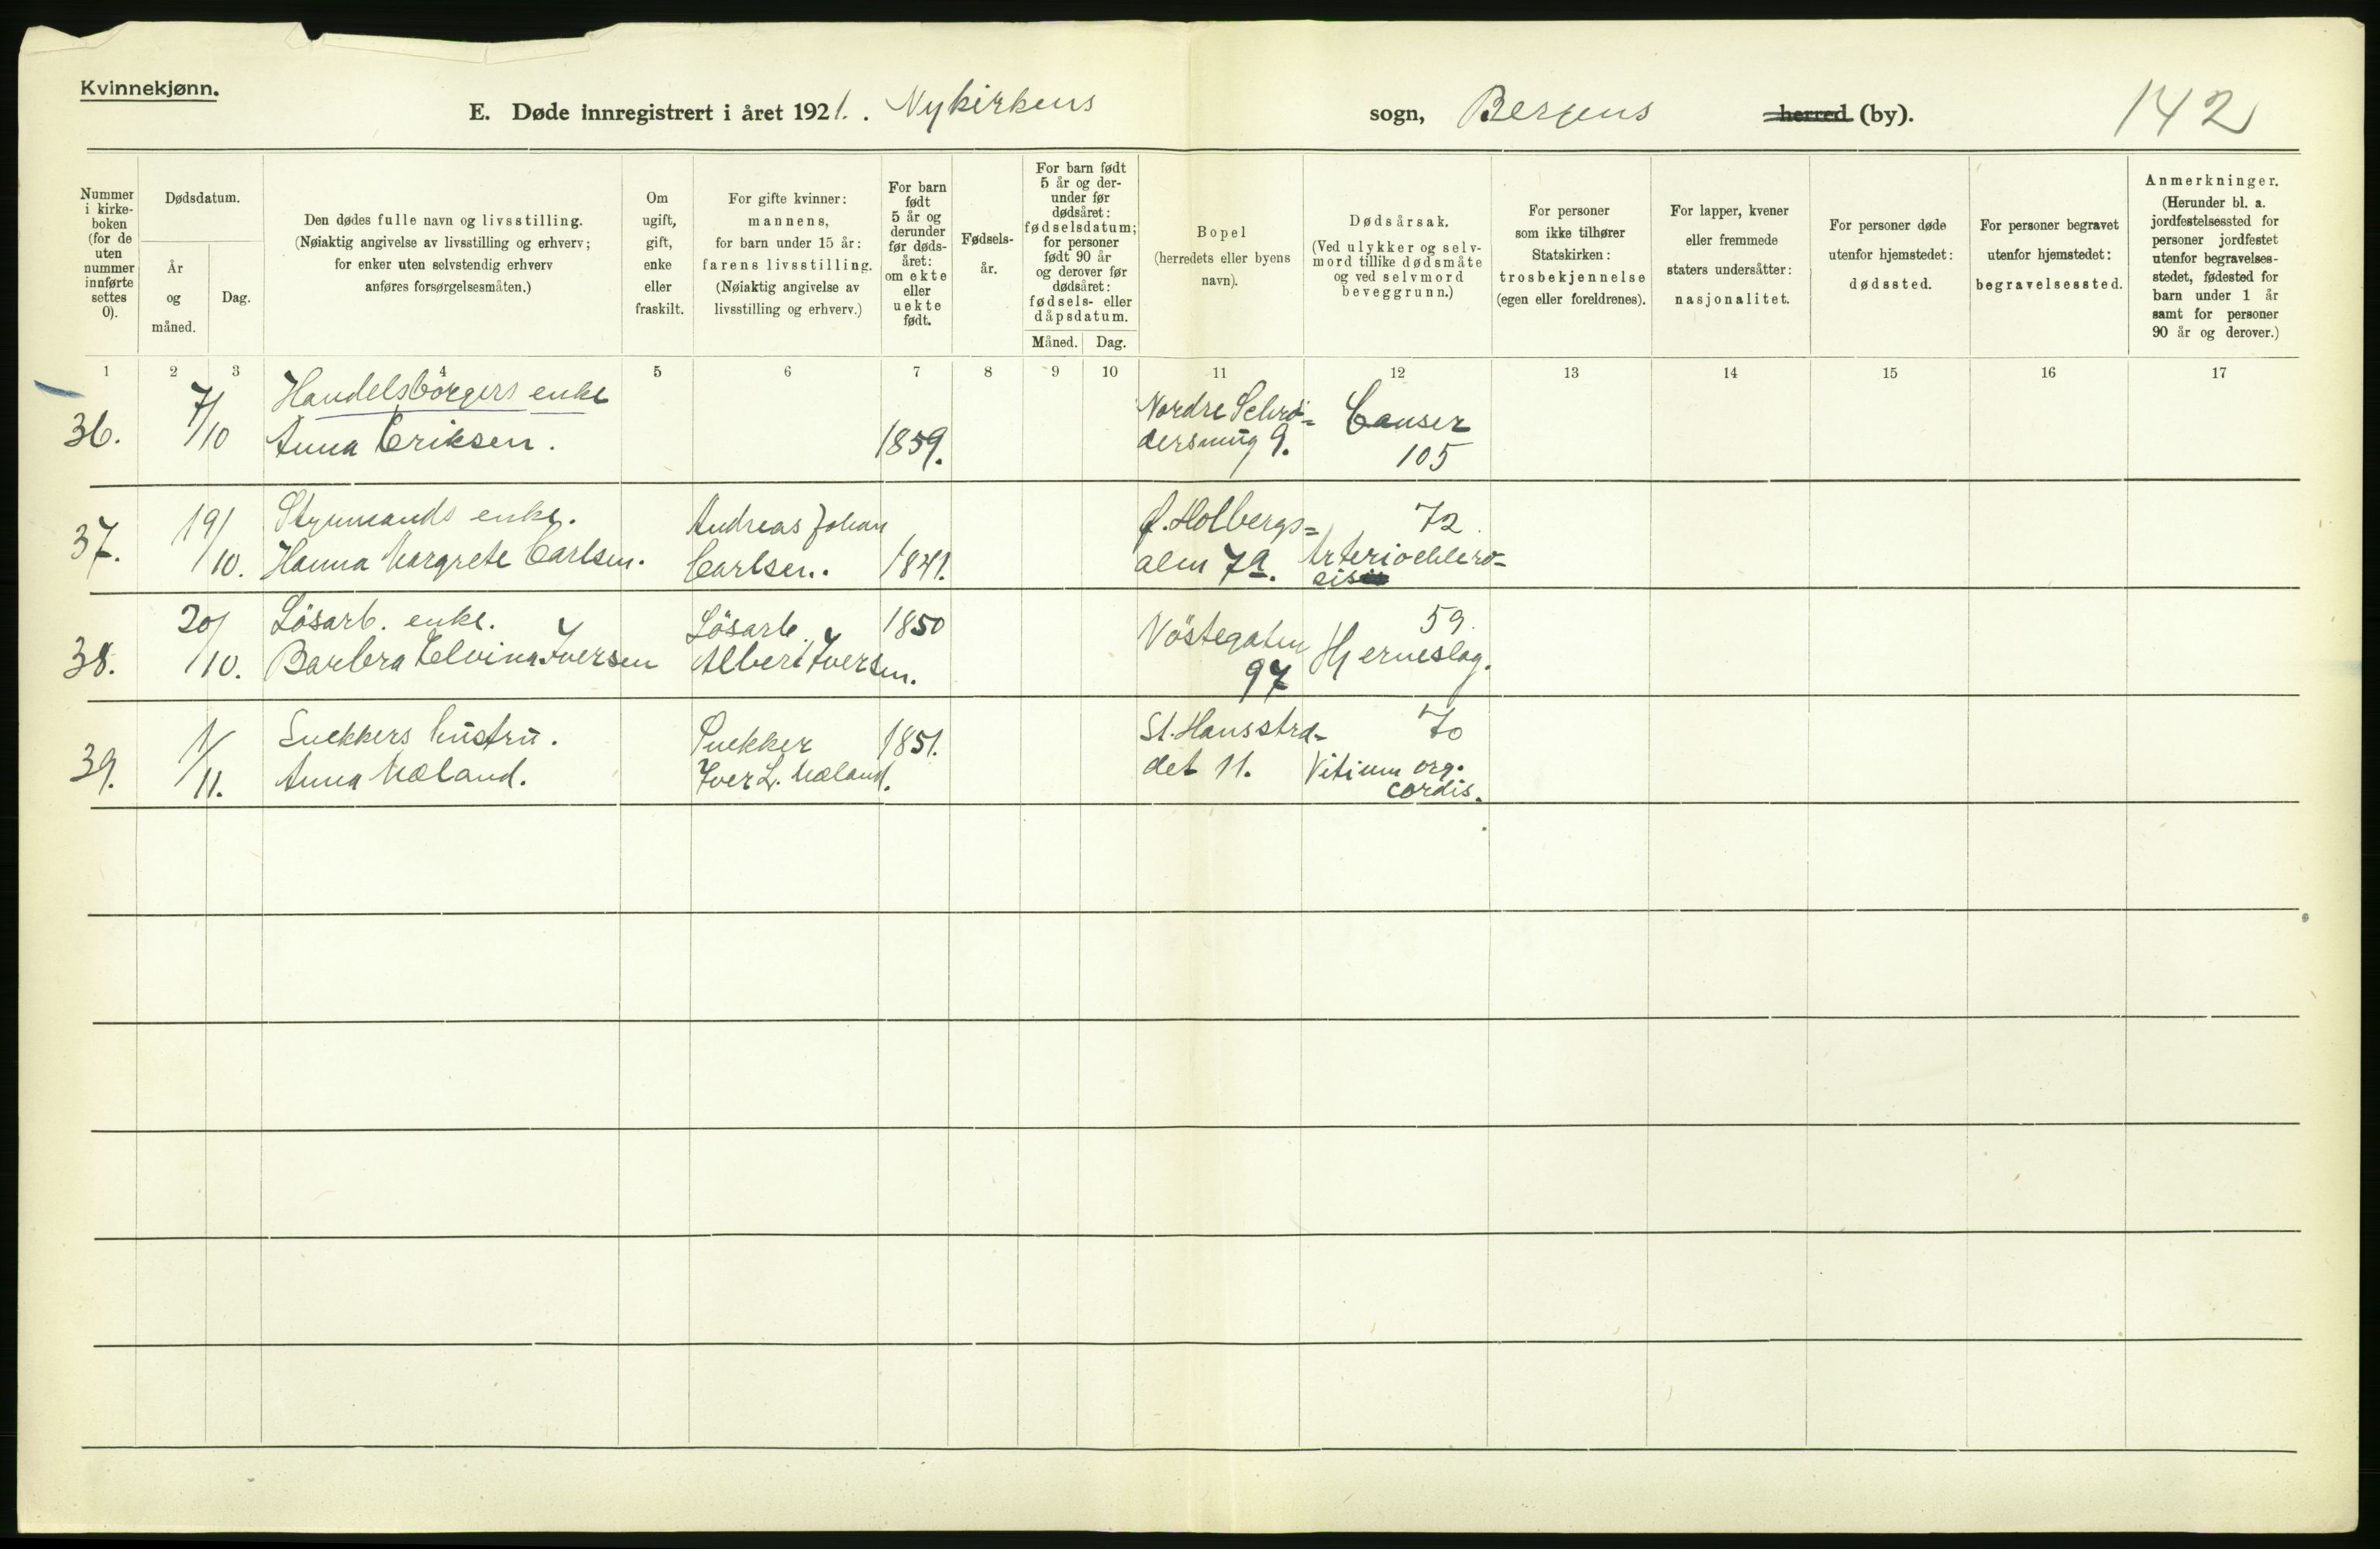 Kvinnekjønn.
E. Døde innregistrert i året 1921. . Nykirkens sogn, Bergens herred (by). 142
Nummer
i kirke-
boken
(for de
uten
nummer
innførte
settes
0).
Dødsdatum.
År
og
måned.
Dag.
Den dødes fulle navn og livsstilling.
(Nøiaktig angivelse av livsstilling og erhverv;
for enker uten selvstendig erhverv
anføres forsørgelsesmåten.)
Om
ugift,
gift,
enke
eller
fraskilt.
For gifte kvinner:
mannens,
for barn under 15 år:
farens livsstilling.
(Nøiaktig angivelse av
livsstilling og erhverv.)
For barn
født
5 år og
derunder
før døds-
året:
om ekte
eller
uekte
født.
Fødsels-
år.
For barn født
5 år og der-
under før
dødsåret:
fødselsdatum;
for personer
født 90 år
og derover før
dødsåret:
fødsels- eller
dåpsdatum.
Måned. Dag.
Bopel
(herredets eller byens
navn).
Dødsårsak.
(Ved ulykker og selv-
mord tillike dødsmåte
og ved selvmord
beveggrunn.)
For personer
som ikke tilhører
Statskirken:
trosbekjennelse
(egen eller foreldrenes).
For lapper, kvener
eller fremmede
staters undersåtter:
nasjonalitet.
For personer døde
utenfor hjemstedet:
dødssted.
For personer begravet
utenfor hjemstedet:
begravelsessted.
Anmerkninger.
(Herunder bl. a.
jordfestelsessted for
personer jordfestet
utenfor begravelses-
stedet, fødested for
barn under 1 år
samt for personer
90 år og derover.)
1 2 3 4 5 6 7 8 9 10 11 12 13 14 15 16 17
36. 7/10
Handelsborgers enke
Anna Eriksen.
1859.
Nordre Schrö=
dersmug 9.
Canser
105
37. 19/10.
Styrmands enke.
Hanna Margrete Carlsen.
Andreas Johan
Carlsen.
1841.
f. Holbergs=
alm 7a.
72.
Arterioclero=
sis
38. 20/10.
Lösarb. enke.
Barbra Elvina Iversen
Lösarb.
Albert Iversen.
1850
Nöstegaten
97
59.
Hjerneslag.
39. 1/11.
Snekkers hustru.
Anna Mæland.
Snekker
Iver L. Mæland.
1851.
St. Hansstræ-
det 11.
70
Vitium org.
cordis.